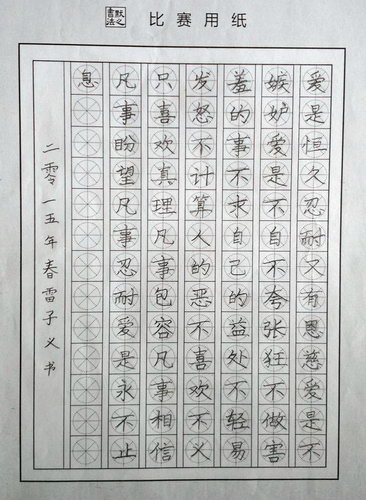 比赛用纸
爱是恒久忍耐又有恩慈爱是不
嫉妒爱是不自不夸张狂不做害
羞的事不求自己的益处不轻易
发怒不计算人的恶不喜欢不义
只喜欢真理凡事包容凡事相信
凡事盼望凡事忍耐爱是永不止
息
二零一五年春雷子义书